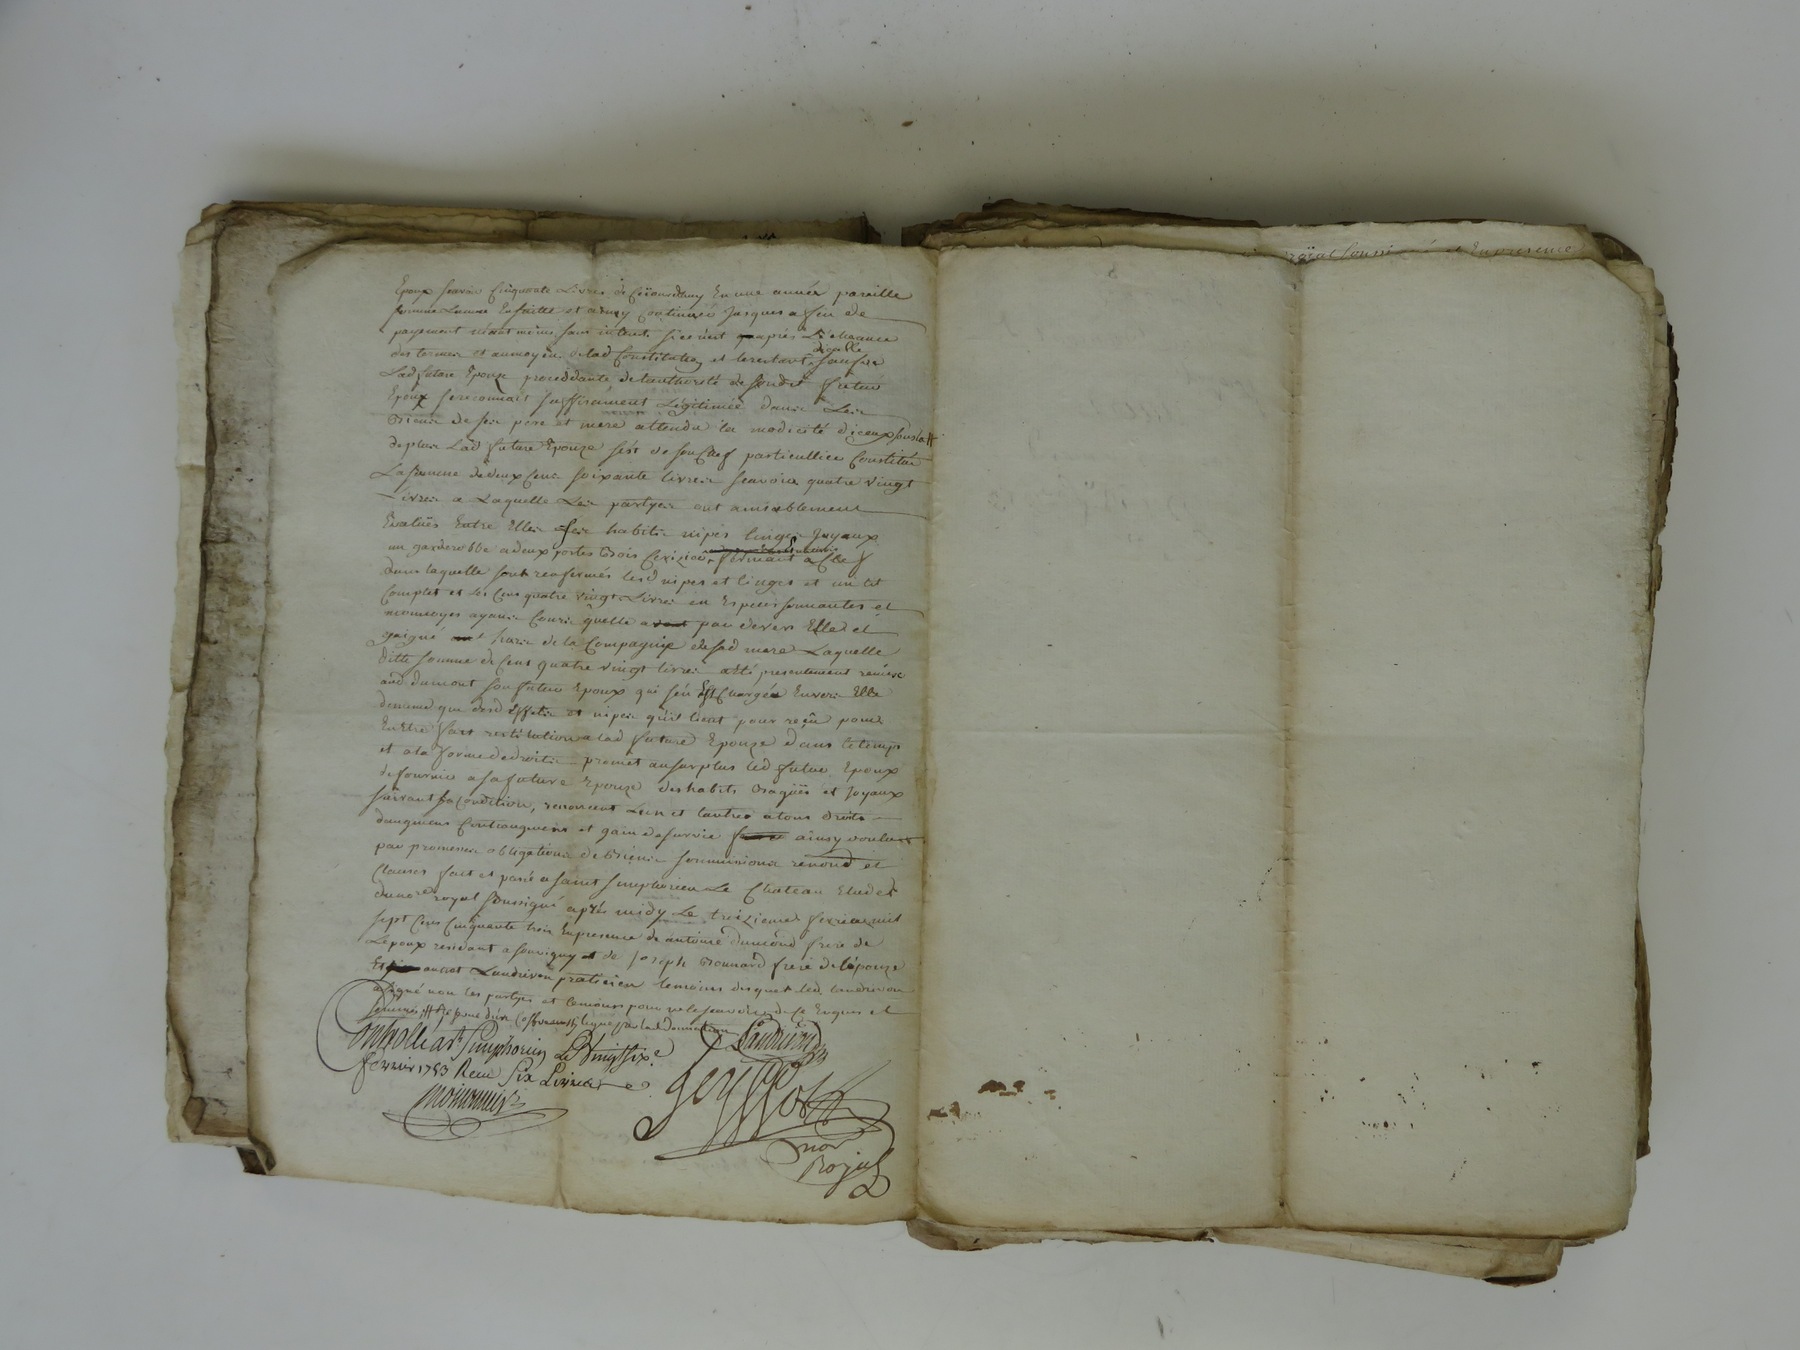 Epoux scavoir Cinquante Livres de Ce jourdhuy En une année pareille
somme Lannee Ensuitte et ainsy Continuer Jusques a fin de
payement neant moins sans interets si ce n'est qu'après L'échéance
des termes et aumoyen de lad Constitution et le restant sausse
dicelle
Lad future Epouze proceddante de lauthorité de sondit futur
Epoux se reconnait suffisament Légitimée dans Les
Biens de ses pere et mere attendu la modicité diceux sous la #
de plus Lad future Epouze s'est de son Chef particullier Constitué
La somme de deux Cens soixante livres scavoir quatre vingt
Livres a Laquelle Les partyes ont amiablement
Evalués Entre Elles ses habits nipes linges Joyaux
un garderobbe a deux portes bois Cerizier fermant a Clef
dans laquelle sont renfermés lesd nipes et linges et un lit
Complet et les Cens quatre vingt Livres en Especes sonnantes et
monnoyes ayant Cours quelle a par devers Elle et
gaigné hors de la Compagnie de sad mere Laquelle
ditte somme de Cens quatre vingt livres a été presentement remise
aud dumont son futur Epoux qui s'en Est Chargée Envers Elle
de meme que desd Effets et nipes qu'il tient pour reçu pour
En Etre fait restitution a lad future Epouze dans le temps
et a la forme de droits promet au surplus led futur Epoux
de fournir a sa future Epouze des habits Bagües et Joyaux
suivant sa Condition, renoncent Lun et lautre a tous droits
daugmens Contraugmens et gain de survie ainsy voulu
par promesses obligations de Biens soummissions renond et
Clauses fait et passé a saint simphorien Le Chateau Etude
du nore royal soussigné après midy Le treizieme fevrier mil
sept Cens Cinquante trois En presence de antoine dumond frere de
Lepoux residant a souvigny et de Joseph Bonnard frere de lépouze
Et ancet Landrivon praticien temoins desquels led. landrivon
a signé non les partyes et temoins pour ne le scavoir de ce Enquis et
sommés #
Controllé a St Simphorien Le Vingt six e
fevrier 1753 Recu Six Livres
Landrivon
nore
Royal